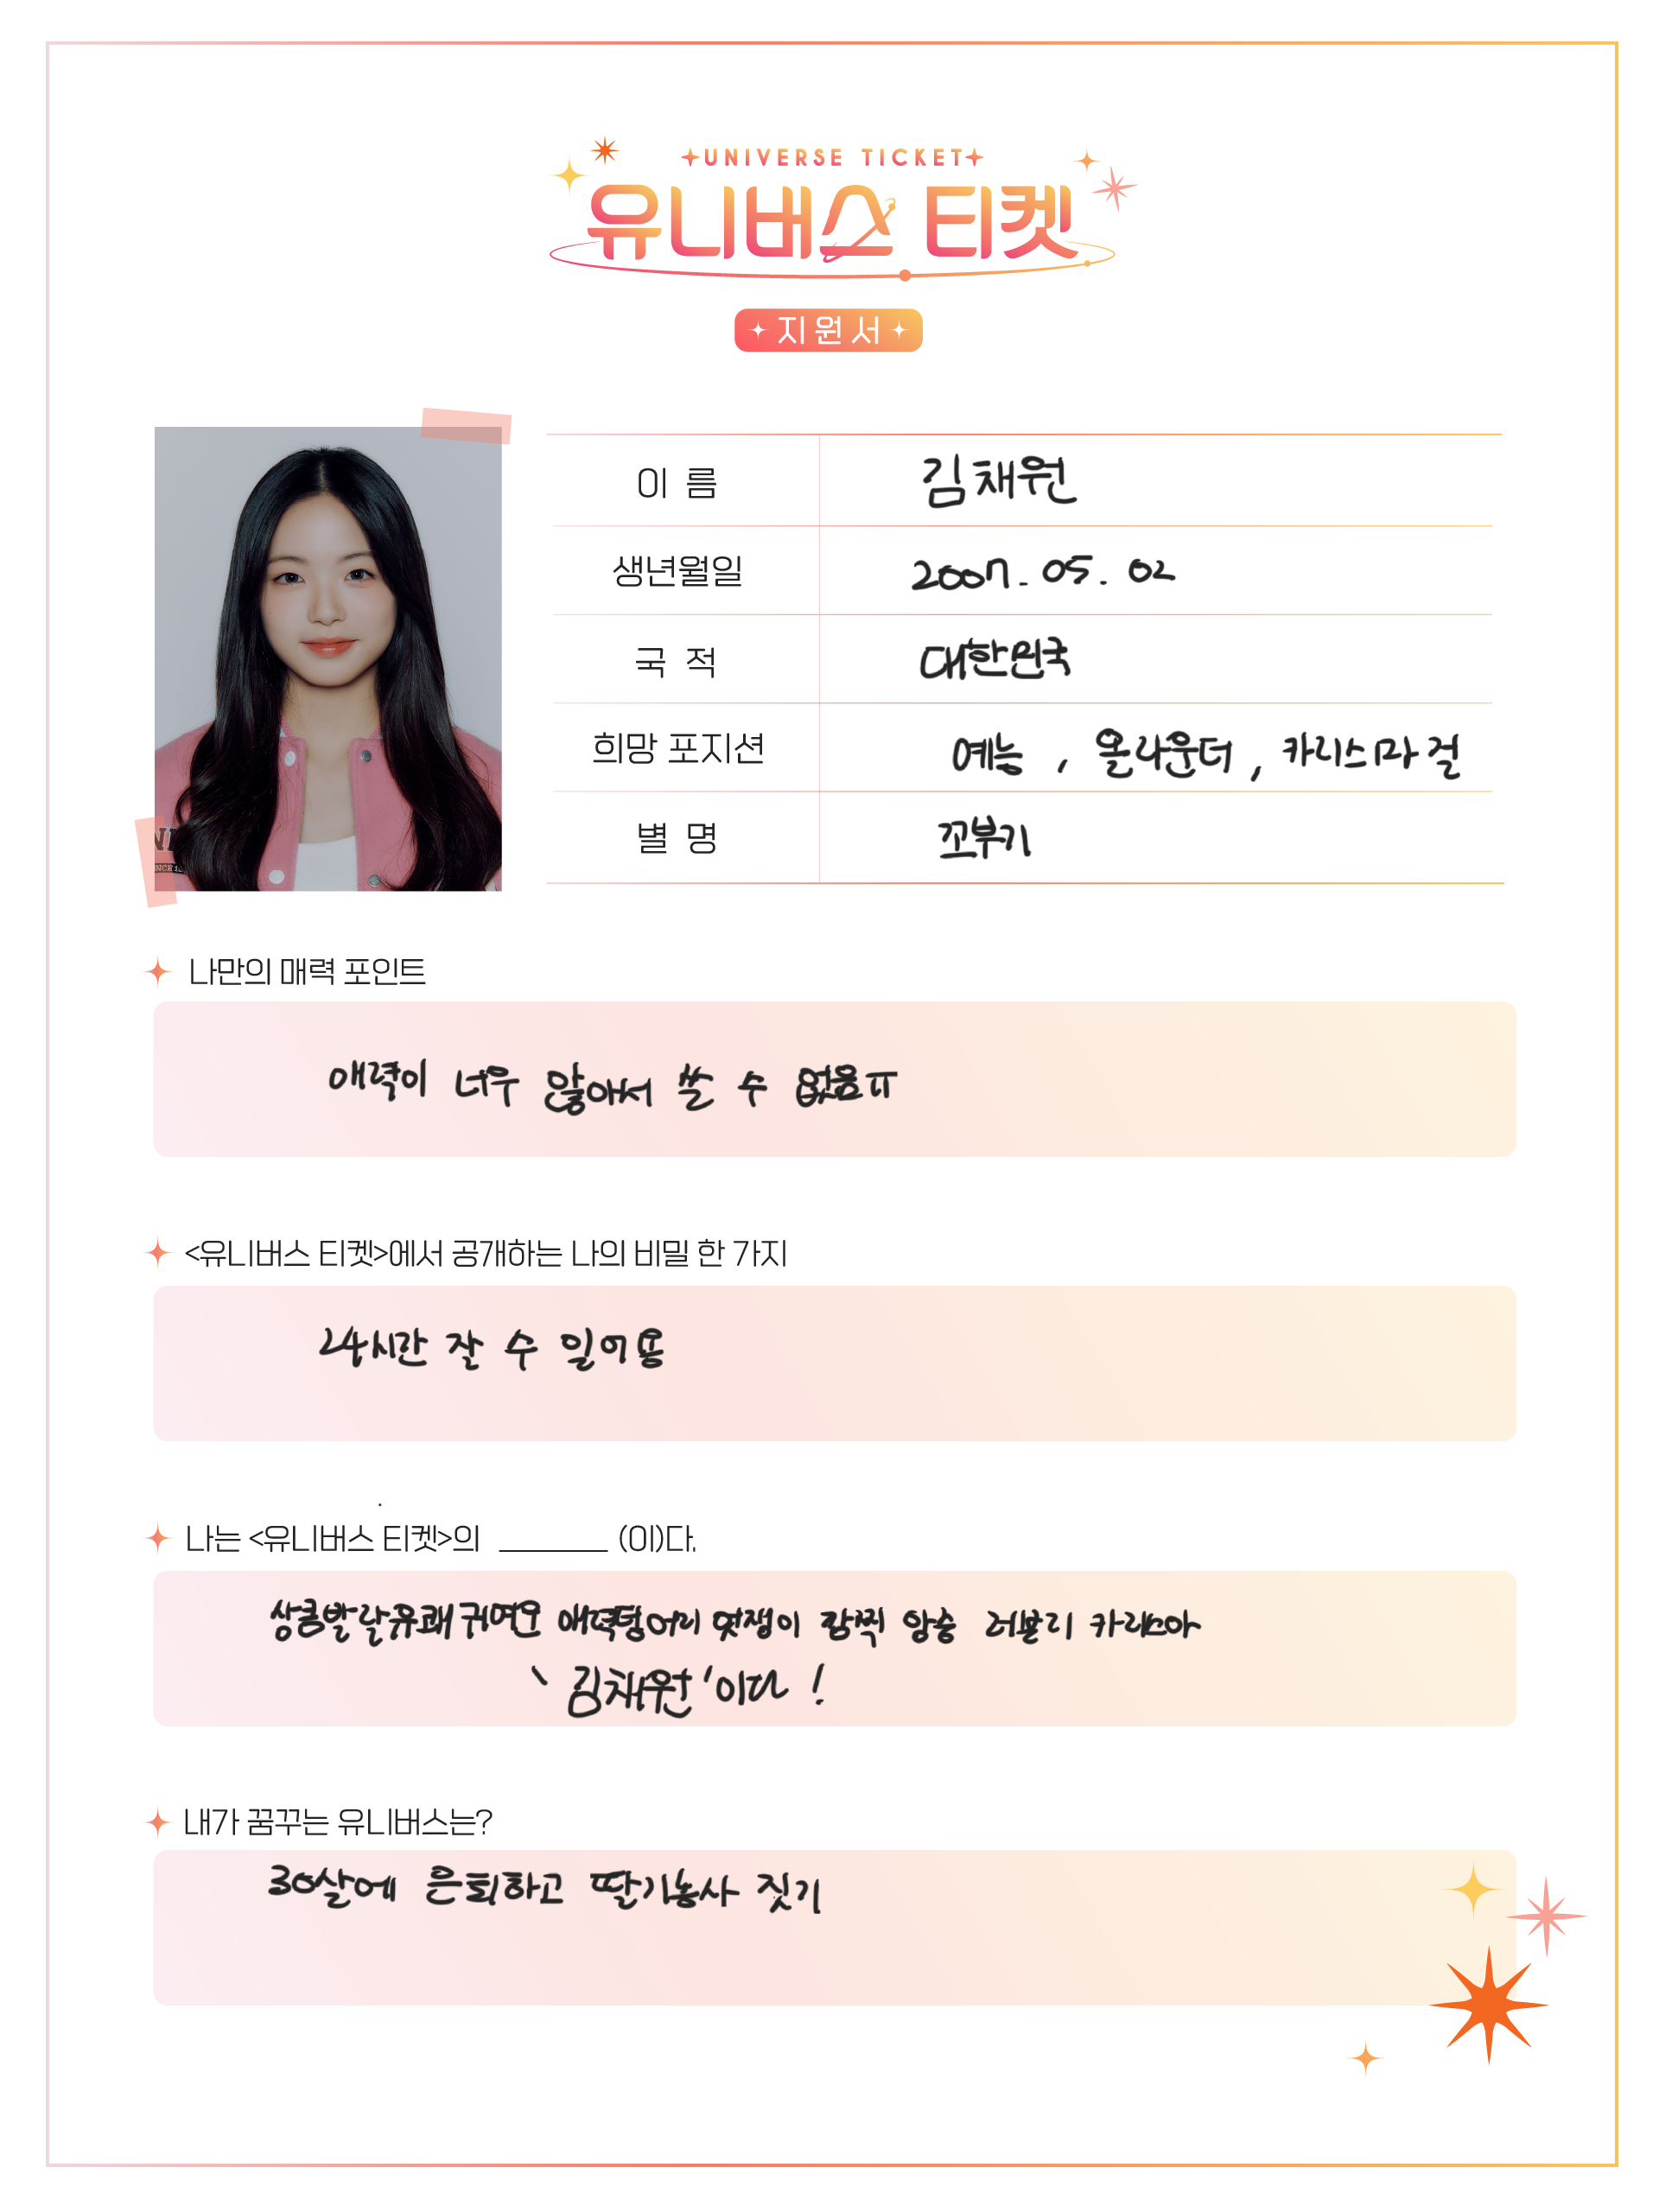 UNIVERSE TICKET
유니버스 티켓
지원서
이 름 김채원
생년월일 2007. 05. 02
국 적 대한민국
희망 포지션 예능, 올라운더, 카리스마 걸
별 명 꼬부기
나만의 매력 포인트
매력이 너무 많아서 쓸 수 없음ㅠ
<유니버스 티켓>에서 공개하는 나의 비밀 한 가지
24시간 잘 수 있어용
나는 <유니버스 티켓>의 ______ (이)다.
상콤발랄유쾌귀여운 매력덩어리 멋쟁이 깜찍 앙승 러블리 카리스마
'김채원'이다!
내가 꿈꾸는 유니버스는?
30살에 은퇴하고 딸기농사 짓기